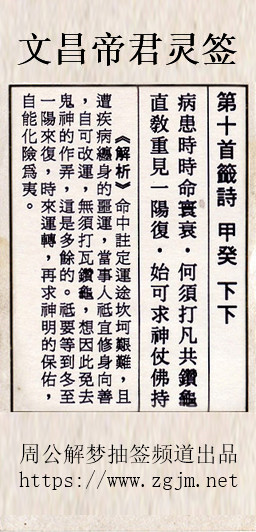 文昌帝君灵签
第十首籤詩 甲癸 下下
病患時時命寰衰．何須打凡共鑽龜
直教重見一陽復．始可求神仗佛持
《解析》命中註定運途坎坷艱難，且
遭疾病纏身的噩運，當事人祗宜修身向善
，自可改運，無須打瓦鑽龜，想因此免去
鬼神的作弄，這是多餘的。祗要等到冬至
一陽來復，時來運轉，再求神明的保佑，
自能化險為夷。
周公解梦抽签频道出品
https://www.zgjm.net